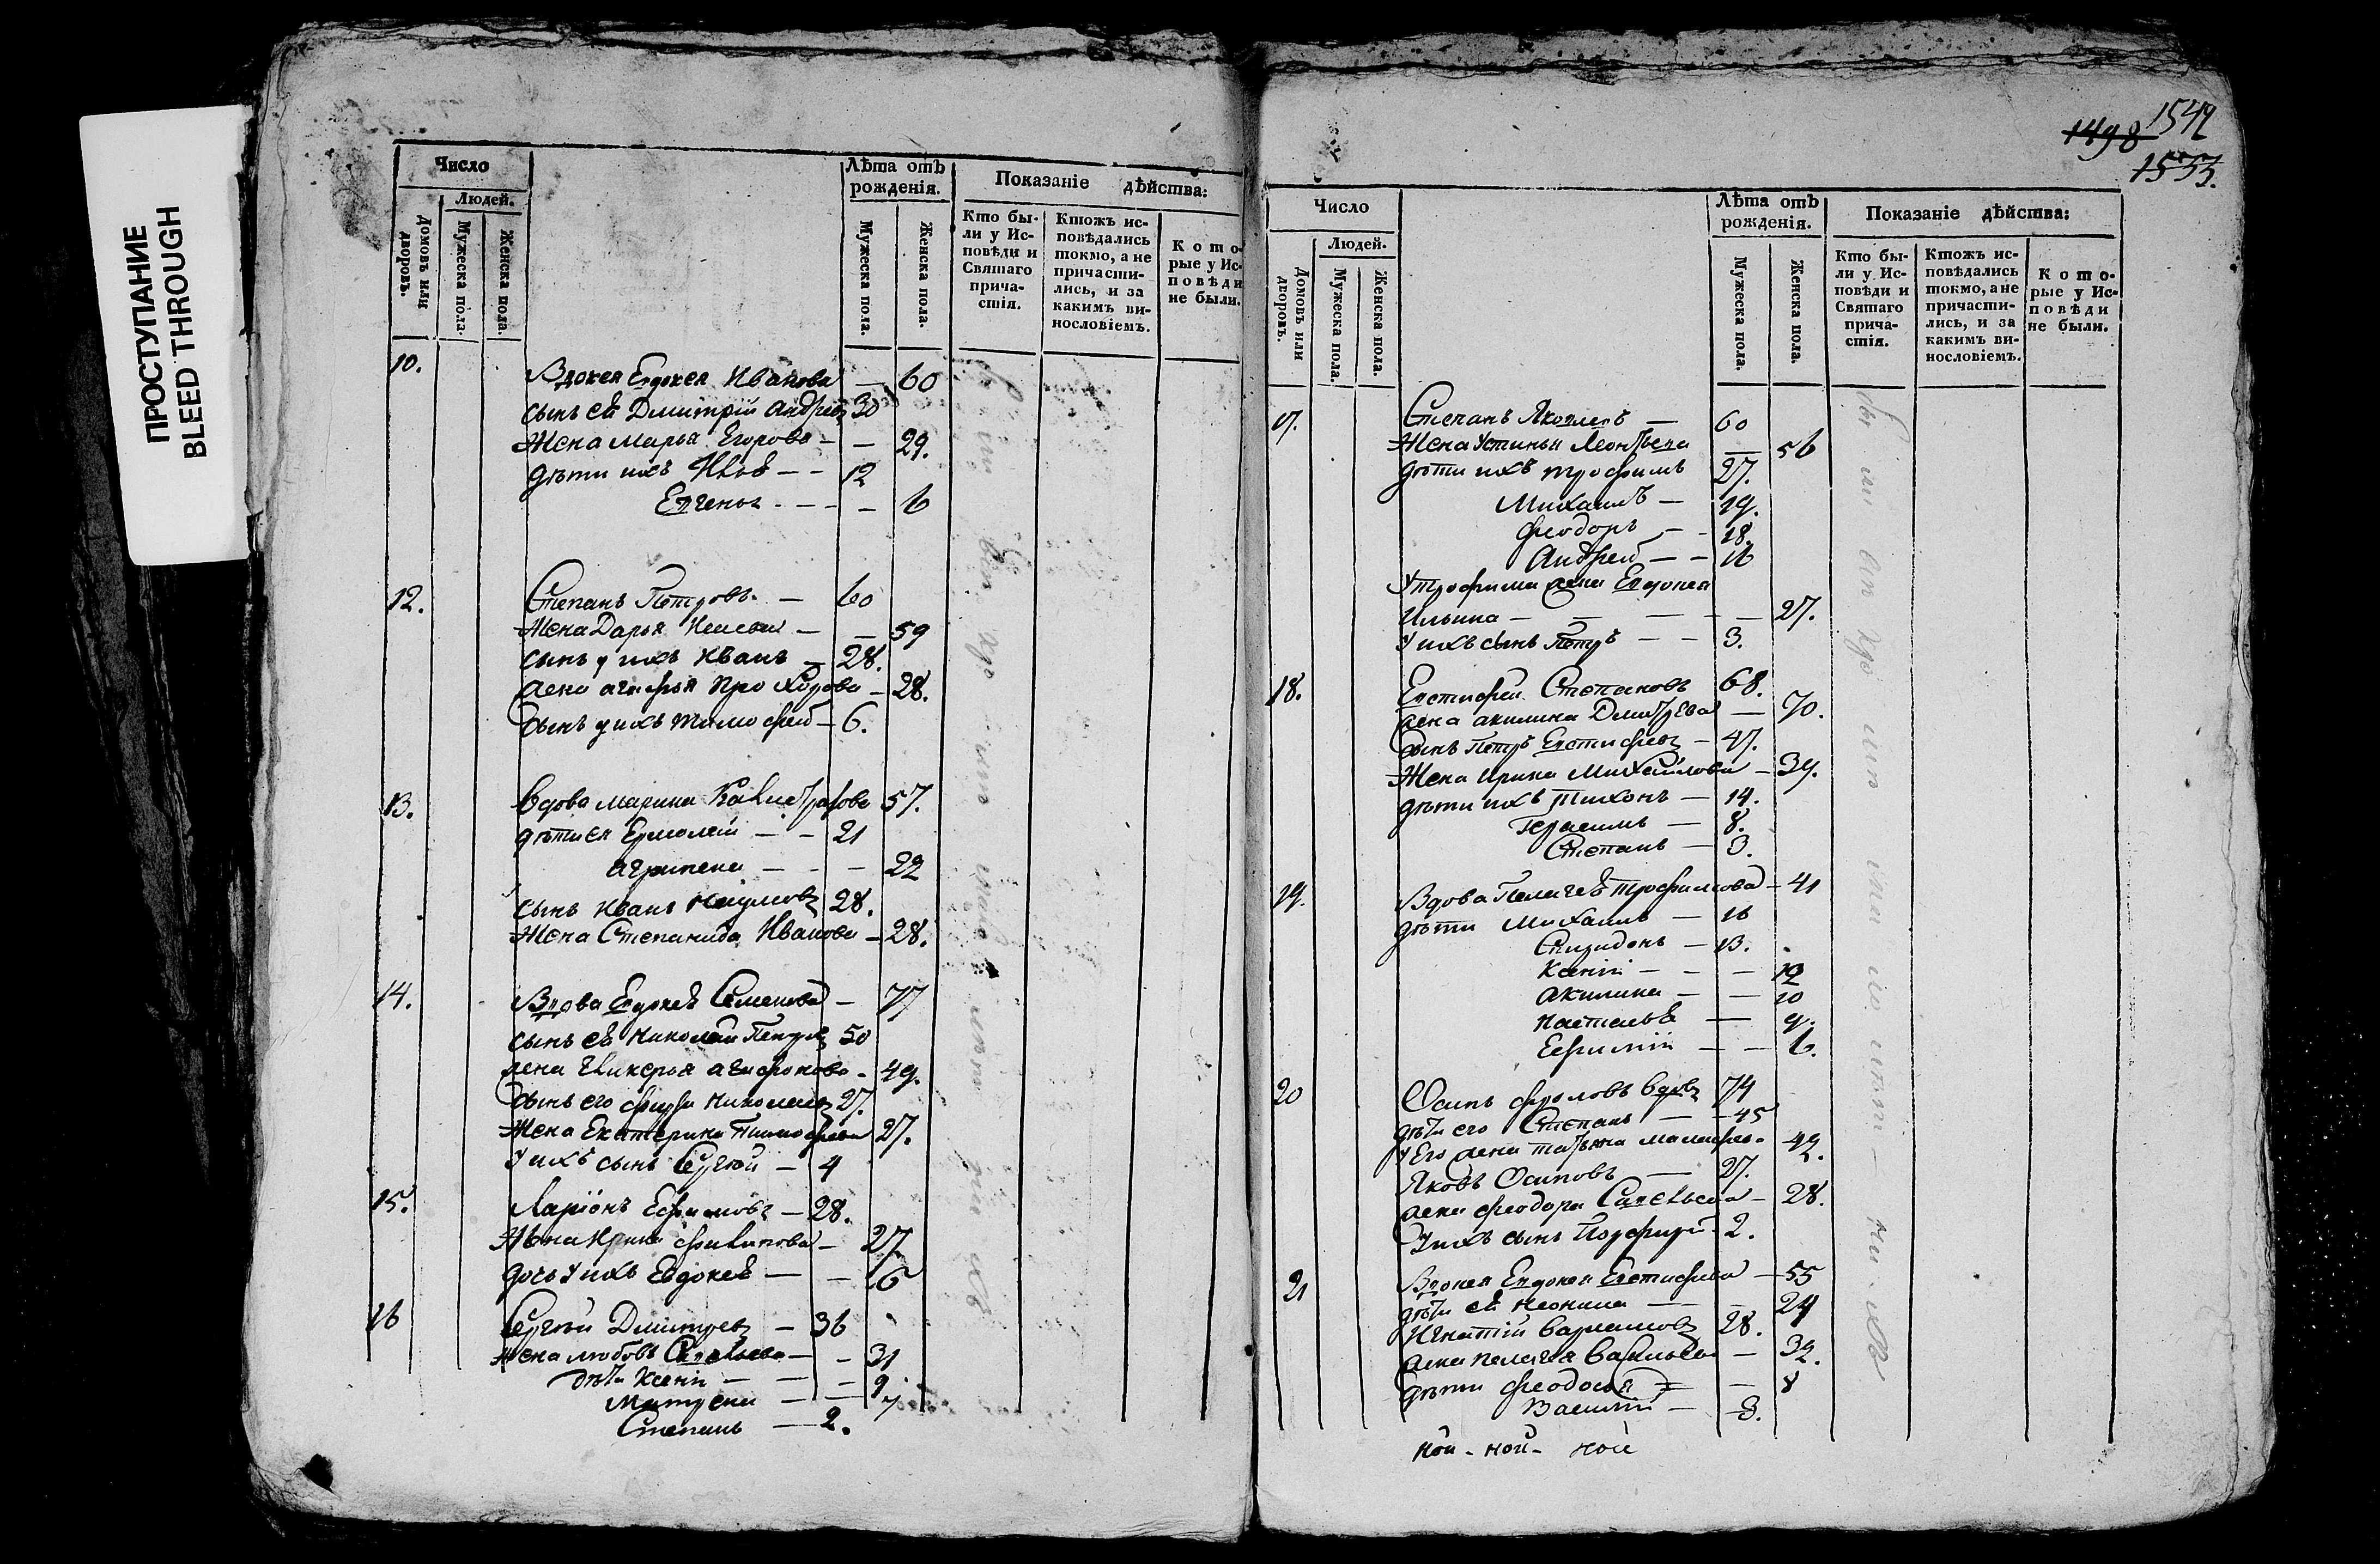 ПРОСТУПАНИЕ
BLEED THROUGH
Число
Людей.
Домовъ или дворовъ.
Мужеска пола.
Женска пола.
Лѣта отъ рожденія.
Мужеска пола.
Женска пола.
Показаніе дѣйства:
Кто бы-
ли у Ис-
повѣди и
Святаго
прича-
стія.
Ктожъ ис-
повѣдались
токмо, а не
причасти-
лись, и за
какимъ ви-
нословіемъ.
Кото-
рые у Ис-
повѣди
не были.
10. Вдовея Евдокея Иванова — 60
сынъ ей Дмитрій Андреев 30
Жена Марья Егорова — — 29.
дѣти ихъ Илья — — 12
Евгенья — — — 6
12. Степанъ Петровъ — 60
Жена Дарья — — 59
сынъ у ихъ Иванъ — 28.
жена агафья Прохорова — 28.
сынъ у ихъ тимофей — 6.
13. Вдова марина 57.
дѣти ея Ермолай — — 21
агрипена — — — 22
сынъ Иванъ Наумов 28.
Жена Степанида Иванова — 28.
14. Вдова Евдокея Семенова — 77
сынъ ей Николай Петров 50
жена гликерья агафонова — 49.
сынъ его Николаев 27.
Жена Екатерина Тимофеева 27.
У ихъ сынъ Сергѣй — 4
15. Ларіонъ Ефимовъ — 28.
Жена Ирина филипова — 27
дочь у ихъ Евдокея — — 6
16 Сергѣй Дмитрев — 36
Жена любовь Савельева — — 31
дѣти Ксенія — — — 9
Матрена — — 7
Степанъ — 2.
1498 1542
1533.
Число
Людей.
Домовъ или дворовъ.
Мужеска пола.
Женска пола.
Лѣта отъ рожденія.
Мужеска пола.
Женска пола.
Показаніе дѣйства:
Кто бы-
ли у Ис-
повѣди и
Святаго
прича-
стія.
Ктожъ ис-
повѣдались
токмо, а не
причасти-
лись, и за
какимъ ви-
нословіемъ.
Кото-
рые у Ис-
повѣди
не были.
17. Степанъ Яковлевъ — 60
Жена Устинья Леонтьева — 56
дѣти ихъ трофимъ 27.
Михаилъ — 19.
феодоръ — — 18.
Андрей — — 16
У трофима жена Евдокея
Ильина — — — — 27.
У ихъ сынъ Петръ — — 3.
18. Евстифей Степановъ 68.
жена акилина Дмитрева — 70.
сынъ Петръ Евстифеев — 47.
Жена ирина Михайлова — 39.
дѣти ихъ тихонъ — 14.
Герасимъ — 8.
Степанъ — 3.
19. Вдова Пелагея трофимова — 41
дѣти Михаилъ — 16
Спиридонъ — 13.
Ксенія — — — 12
акилина — — 10
настасья — 9.
Ефимія — — 6.
20 Осипъ фроловъ вдов 74
дѣти его Степанъ — — 45
У Его жена татьяна — 42.
Яковъ Осиповъ — 27.
жена феодора Савельева — 28.
У ихъ сынъ Порфирій — 2.
21 Вдовея Евдокея Евстифева — 55
дѣти ей неонила — — 24
Игнатій Варламов 28.
жена пелагея Васильева — 32.
дѣти феодосья — — 8
Василій — 3.
ной - ной - ной